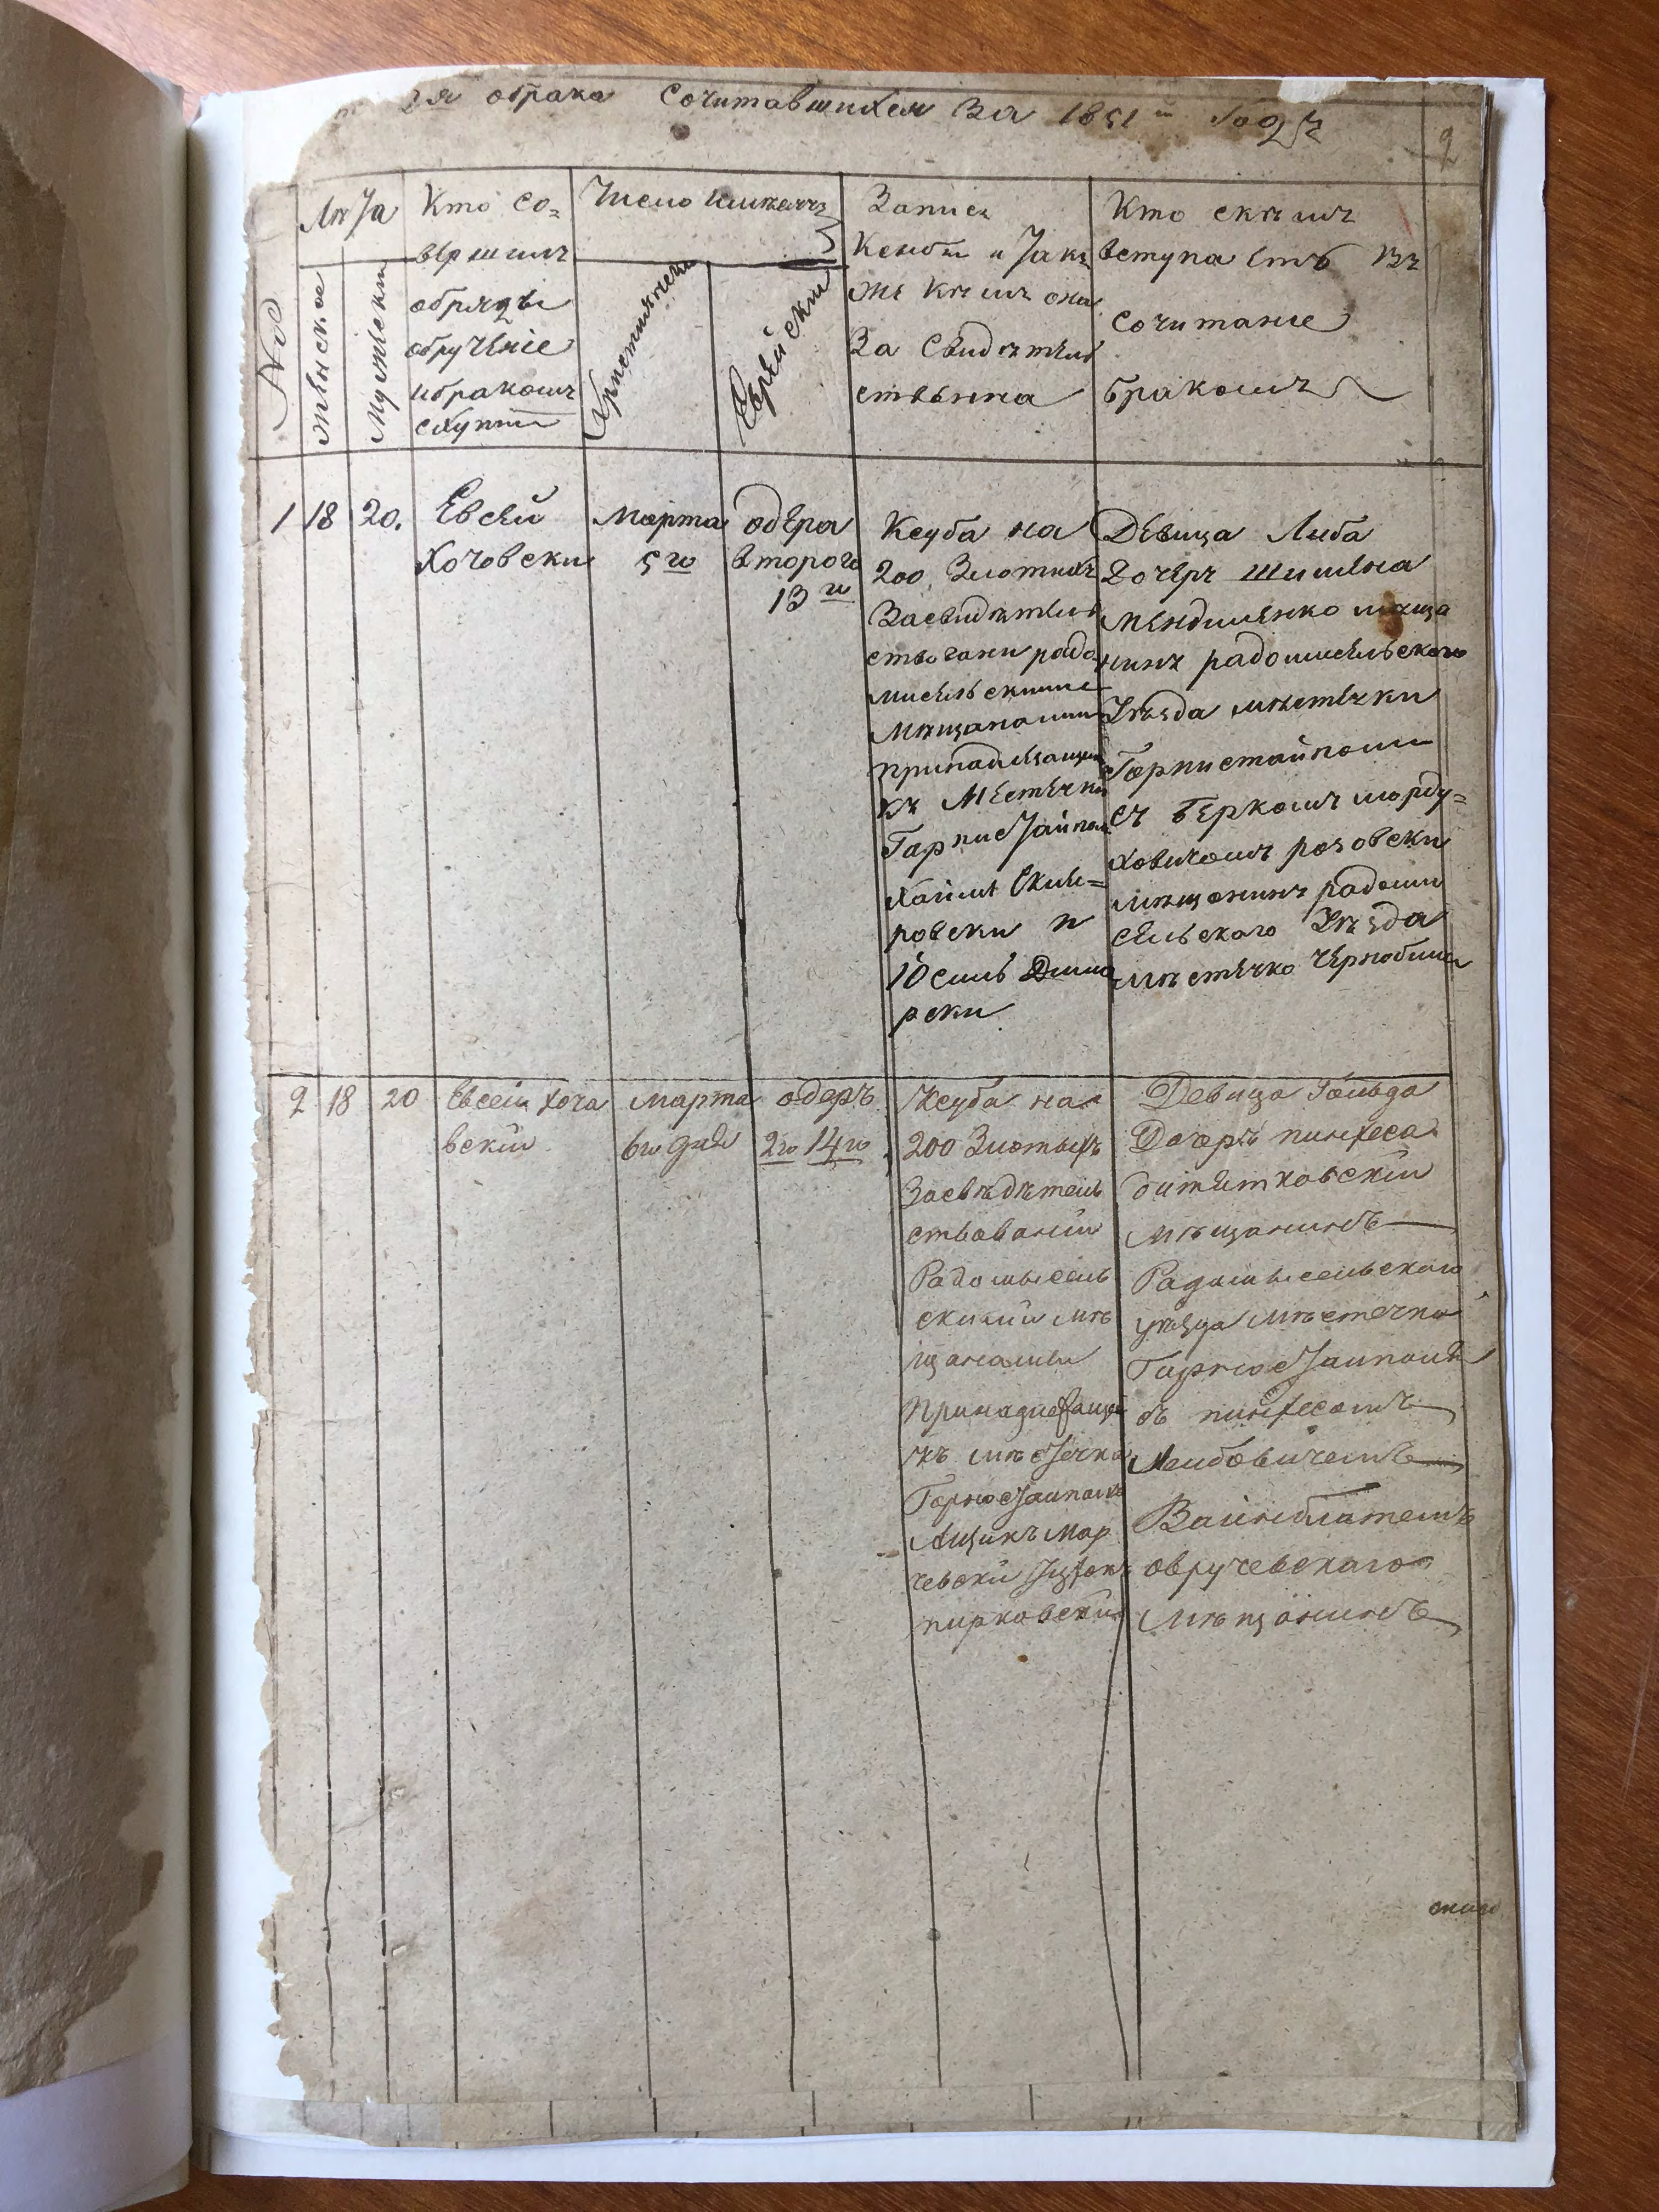 брака Сочитавшихся За 1851 й Годъ
2
№
Лѣта
женское
Мужески
Кто со=
вършилъ
обряды
обручѣніе
ибракомъ
схупы
Число имесяцъ
Християнски
Еврейски
Запись
Кенбы и Jакъ
же Кѣмъ она
За Свидѣтель
ствѣнна
Кто скѣмъ
вступаетъ Въ
Сочитание
бракомъ
1
18
20.
Евсей
Хочовски
Марта
5го
одера
второго
13 го
Ксуба на
200 Злотихъ
Засвидѣтель
ствовани радо
мисельскими
Мѣщанами
принадлѣжащи
къ Мѣстѣчки
Горнистайполя
Хаимъ Скли=
ровски и
Юсиль Дими
рски
Дѣвица Либа
Дочѣръ Шимѣна
Мѣндилѣнко мѣща
нинъ радомисельского
Уѣзда мѣстѣчки
Горнистайполи
Съ Беркомъ морду=
ховичомъ розовски
мѣщанинъ радоми
сельского Уѣзда
мѣстѣчко Чѣрнобиля
2
18
20
Евсей хоча
вскій
Марта
6го дня
одеръ
2го 14го
Ксуба на
200 Злотыхъ
Засвѣдѣтель
ствованій
Радомысель
скими мѣ
щанами
Принадлежащи
къ мѣстечка
Горностаиполя
Ацикъ Мар
чевски Ицфокъ
пирковскій
Девица Гольда
Дочеръ пинхеса
битѣтковскій
мѣщанинъ
Радомысельскаго
уѣзда мѣстечка
Горностаиполя
съ пинхесомъ
Леибовичемъ
Ваинблатемъ
овручевскаго
мѣщанинъ